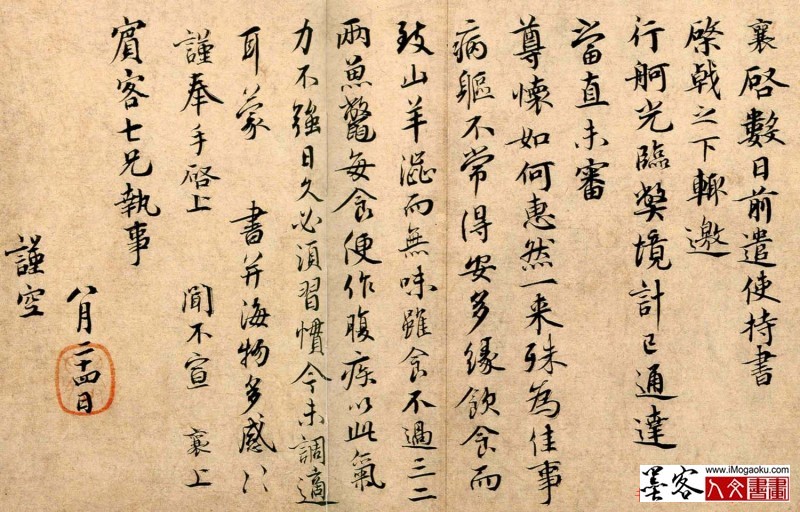 襄啓數日前遣使持書
棨戟之下輙邀
行舸光臨弊境計已通達
當直未審
尊懷如何惠然一来殊為佳事
病軀不常得安多緣飲食而
致山羊澁而無味雖食不過三二
兩魚鼈每食便作腹疾以此氣
力不強日久必須習慣今未調適
耳蒙 書并海物多感〻
謹奉手啓上 聞不宣 襄上
賓客七兄執事
八月二十四日
謹空
www.iMogaoku.com
墨客
人文書畫